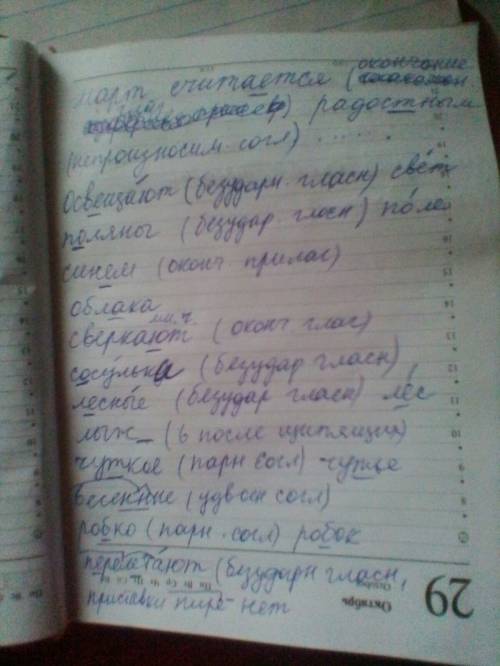 март считается (окончание
глаг
) радостным
(непроизносим. согл)
Освещают (безударн. гласн) свет
поляны (безудар гласн) поле
синем (оконч прилаг)
облака
мн. ч.
сверкают (оконч глаг)
сосульки (безудар гласн)
лесные (безудар гласн) лес
лыж_ (ь после шипящих)
чуткое (парн согл)
весенние (удвоен согл)
робко (парн. согл) робок
перелетают (безударн гласн,
приставки пире- нет
29
Октябрь